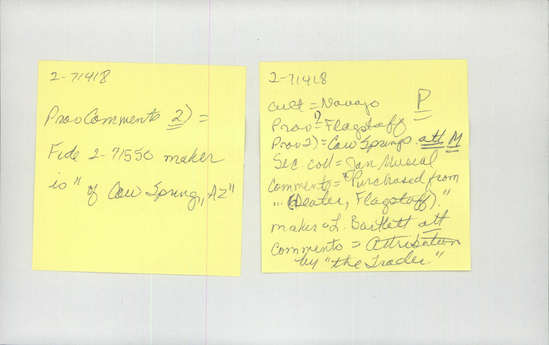 2-71418
Prov Comments 2) =
Fide 2-71550 maker
is "of Cow Spring, AZ"
2-71418
cult = Navajo P
Prov? = Flagstaff
Prov 2) = Cow Springs att M
Sec. coll = Jan Musial
Comments = "Purchased from
... (Dealer, Flagstaff)."
maker = L. Bartlett att
comments = Attribution
by "the Trader."